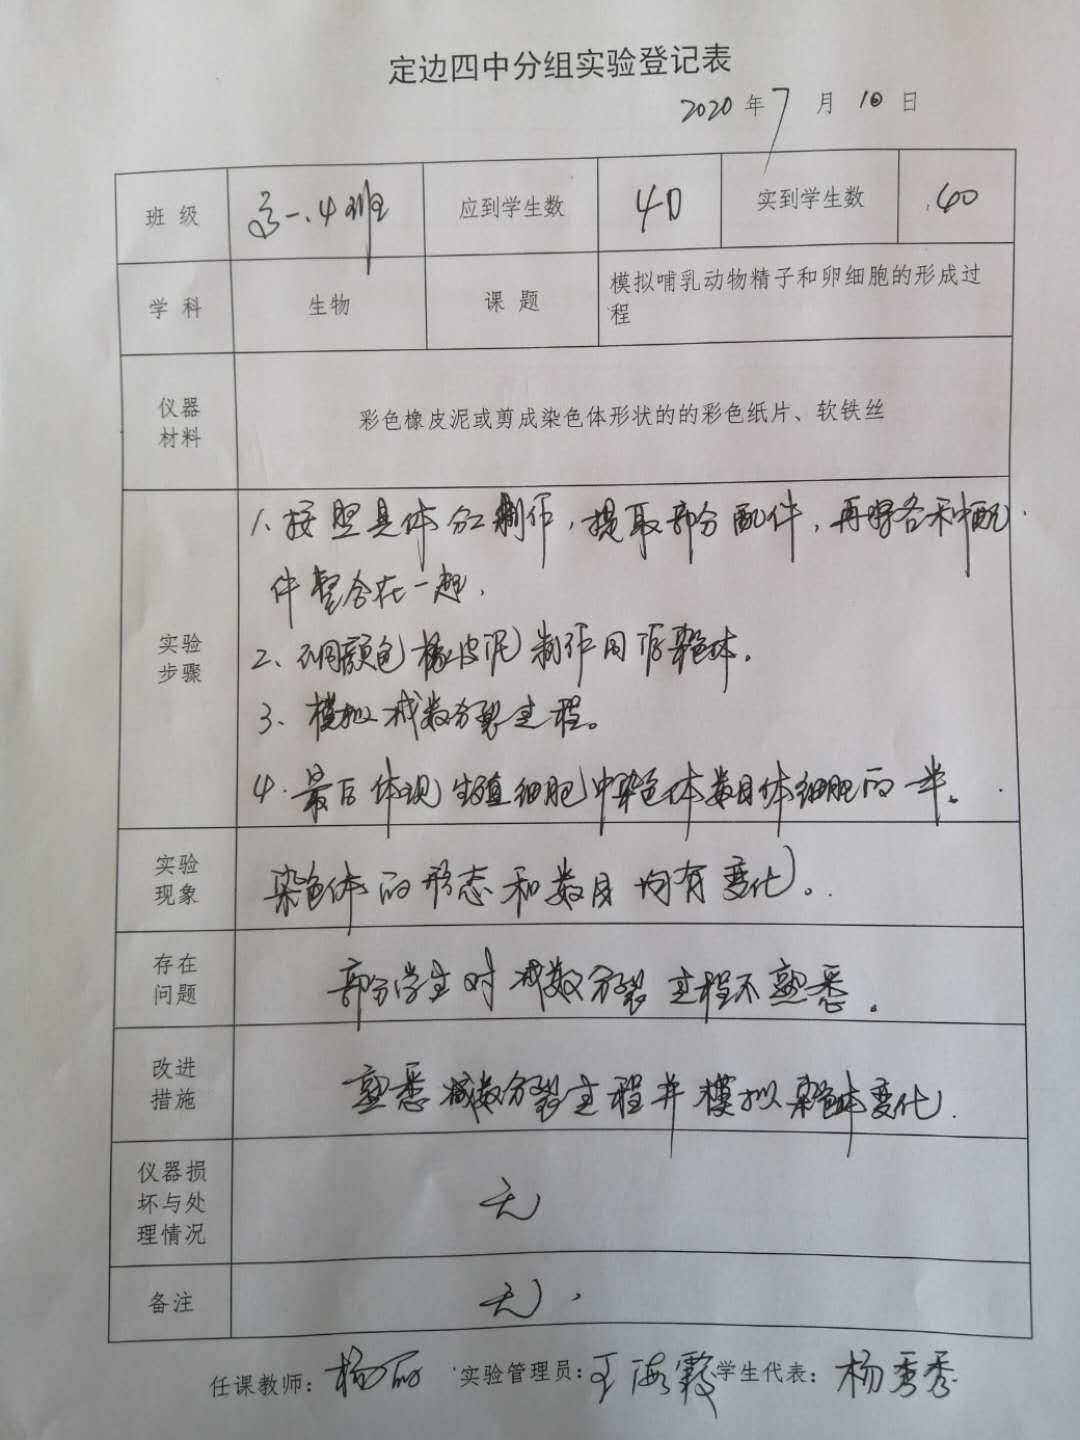 定边四中分组实验登记表
2020年7月10日
班级 高一.4班 应到学生数 40 实到学生数 40
学科 生物 课题 模拟哺乳动物精子和卵细胞的形成过
程
仪器
材料
彩色橡皮泥或剪成染色体形状的的彩色纸片、软铁丝
实验
步骤
1、按照具体分工制作，提取部分配件，再将各种配
件整合在一起.
2、不同颜色橡皮泥制作同源染色体。
3、模拟减数分裂过程。
4.最后体现生殖细胞中染色体数目体细胞的一半。
实验
现象
染色体的形态和数目均有变化。
存在
问题
部分学生对减数分裂过程不熟悉。
改进
措施
熟悉减数分裂过程并模拟染色体变化.
仪器损
坏与处
理情况
无
备注
无.
任课教师：杨 实验管理员：王海霞 学生代表：杨秀秀